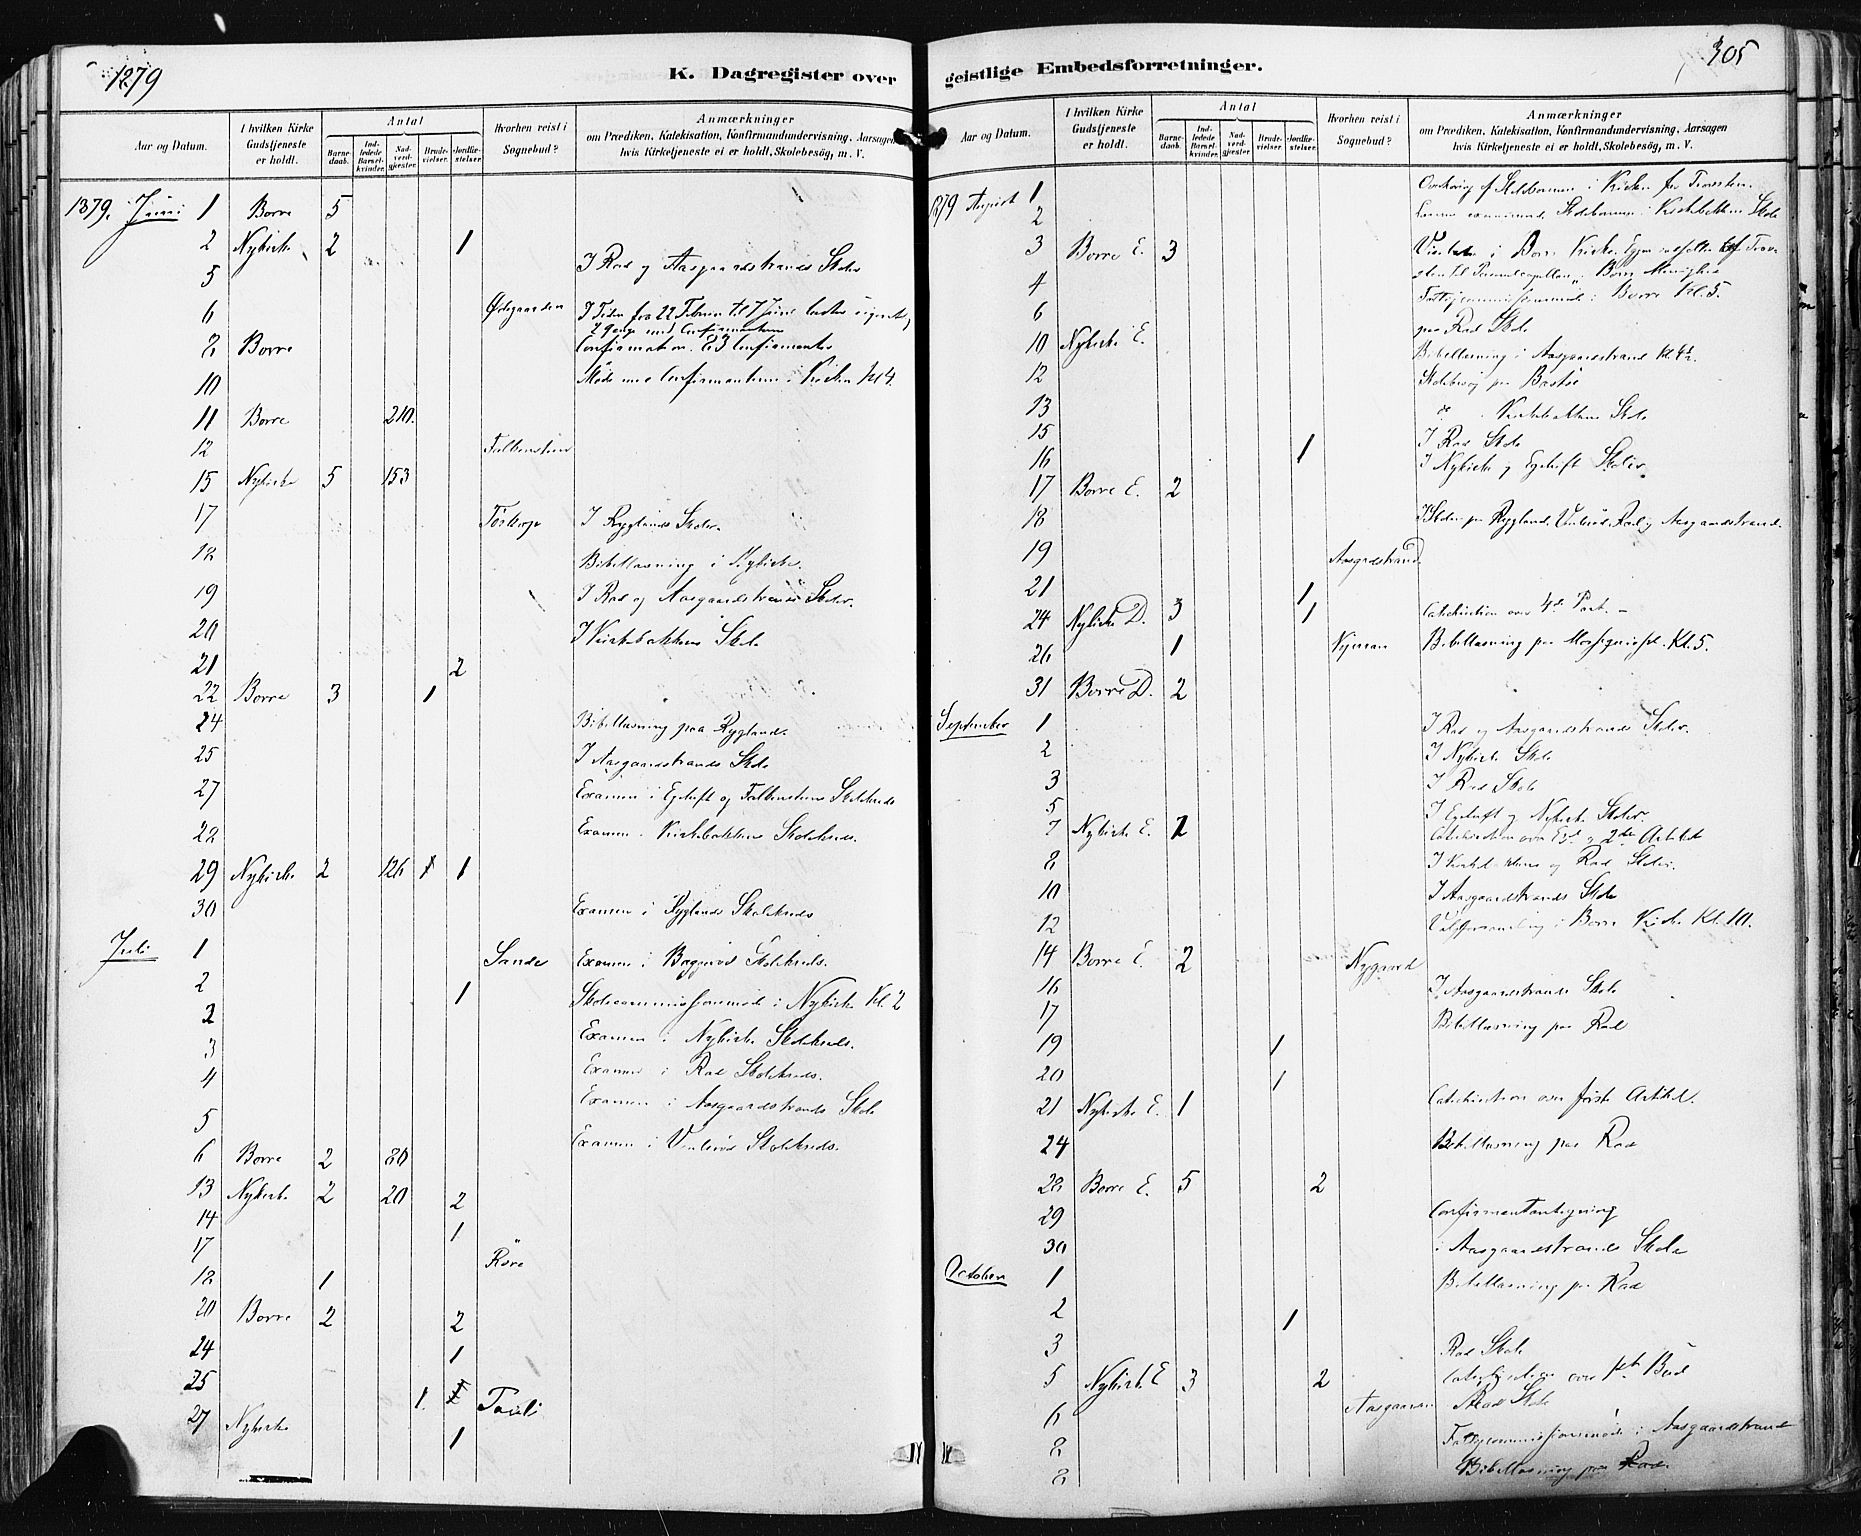 1879
K. Dagregister over
Aar og Datum.
I hvilken Kirke Gudstjeneste er holdt.
Antal
Barnedaab.
Indledede Barselkvinder.
Nadverdgjester.
Brudevielser.
Jordfæstelser.
Hvorhen reist i Sognebud?
Anmærkninger
om Prædiken, Katekisation, Konfirmandundervisning, Aarsagen
hvis Kirketjeneste ei er holdt, Skolebesög, m. V.
1879. Juni 1 Borre 5
2 Nykirke 2 1
5 I Rad og Aasgaardstrands Skoler
6 Ødegaarden I Tiden fra 22 Februar til 7 Juni
2 Gange med Confirmanterne
8 Borre Confirmation. 23 Confirmanter
10 Møde med Confirmanterne i Kirken Kl 4.
11 Borre 210.
12 Falkensteen
15 Nykirke 5 153
17 I Ryglands Skoler.
18 Bibellæsning i Nykirke.
19 I Rad og Aasgaardstrands Skoler.
20 I Kirkebakkens Skole
21 2
22 Borre 3 1
24 Bibellæsning paa Rygland.
25 I Aasgaardstrands Skole
27 Examen i Egtuft og Falkensteens Skolekreds
28 Examen i Kirkebakkens Skolekreds.
29 Nykirke 2 126 1 1
30 Examen i Ryglands Skolekreds
Juli 1 Sande Examen i Baggerød Skolekreds.
2 1 Skolecommissionsmøde i Nykirke Kl. 2
2 Examen i Nykirke Skolekreds.
3 Examen i Rad Skolekreds.
4 Examen i Aasgaardstrands Skole
5 Examen i Vinterød Skolekreds.
6 Borre 2 80
13 Nykirke 2 20 2
14 1
17 Røre
18 1
20 Borre 2 2
24 1
25 1.
27 Nykirke 1
305
geistlige Embedsforretninger.
Aar og Datum.
I hvilken Kirke Gudstjeneste er holdt.
Antal
Barnedaab.
Indledede Barselkvinder.
Nadverdgjester.
Brudevielser.
Jordfæstelser.
Hvorhen reist i Sognebud?
Anmærkninger
om Prædiken, Katekisation, Konfirmandundervisning, Aarsagen
hvis Kirketjeneste ei er holdt, Skolebesög, m. V.
1879 August 1
2 Skolebørnene i Kirkebakkens Skole
3 Borre E. 3 i Borre Kirke
4 Borre Menighed
6 Fattigcommissionsmøde i Borre Kl. 5.
paa Rad Skole
10 Nykirke E.
12 Bibellæsning i Aasgaardstrand Kl. 4½.
Skolebesøg paa Bastø
13 do Kirkebakkens Skole
15 1 I Rad Skole
16 I Nykirke og Egtuft Skoler.
17 Borre E. 2
18 I Skolen paa Rygland, Vinterød, Rad og Aasgaardstrand.
19 Aasgaardstrand
21 1
24 Nykirke D. 3 1 Catechisation over 4de Part.
26 1 Bibellæsning paa Kl. 5.
31 Borre D. 2
September 1 I Rad og Aasgaardstrands Skoler.
2 I Nykirke Skole
3 I Rad Skole
5 I Egtuft og Nykirke Skoler.
7 Nykirke E. 2 Catechisation over og 2den Artikel
8 og Rad Skoler.
10 I Aasgaardstrands Skole
12 Valgforsamling i Borre Kirke Kl. 10.
14 Borre E. 2 Nygaard
16 I Aasgaardstrands Skole
17 Bibellæsning paa Rad
19 1
20 1
21 Nykirke E. 1 Catechisation over første Artikel.
24 Bibellæsning paa Rad
28 Borre E. 5 2
29 Confirmantantegning
30 i Aasgaardstrands Skole
October 1 Bibellæsning paa Rad
2 1
3 Rad Skole
5 Nykirke E 3 2
6 Aasgaarden Rad Skole
8 Fattigcommissionsmøde i Aasgaardstrand
8 Bibellæsning paa Rad.